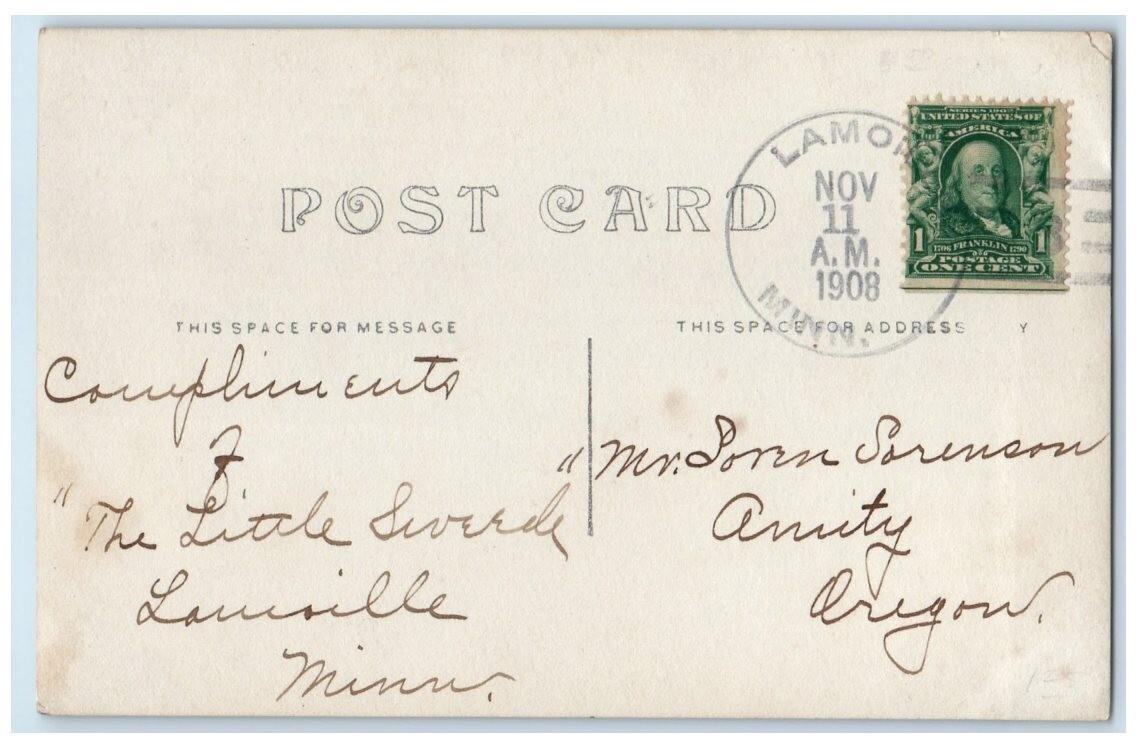 POST CARD
LAMO
NOV
11
A.M.
1908
MINN.
SERIES 1902
UNITED STATES OF
AMERICA
1 1706 FRANKLIN 1790 1
POSTAGE
ONE CENT
THIS SPACE FOR MESSAGE
THIS SPACE FOR ADDRESS
Y
Compliments
of
"The Little Swede"
Minn.
Mr. Soren Sorenson
Amity
Oregon.